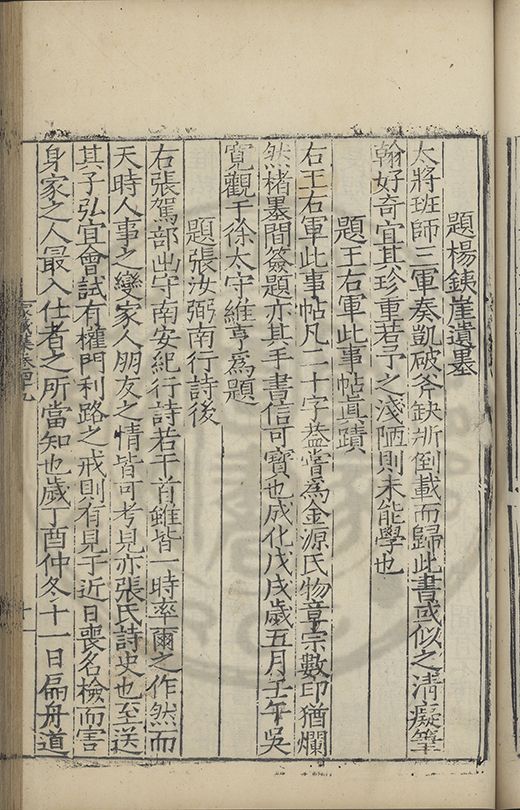 題楊鐵崖遺墨
大將班師三軍奏凱破斧缺斨倒載而歸此書或似之清癡筆
翰好奇宜其珍重若予之淺陋則未能學也
題王右軍此事帖真蹟
右王右軍此事帖凡二十字葢嘗爲金源氏物章宗數印猶爛
然楮墨間簽題亦其手書信可寶也成化戊戌歲五月壬午吳
寬觀于徐太守維亨爲題
題張汝弼南行詩後
右張駕部出守南安紀行詩若干首雖皆一時率爾之作然而
天時人事之變家人朋友之情皆可考見亦張氏詩史也至送
其子弘宜會試有權門利路之戒則有見于近日喪名檢而害
身家之人最入仕者之所當知也歲丁酉仲冬十一日扁舟道
家藏集卷四九
十一